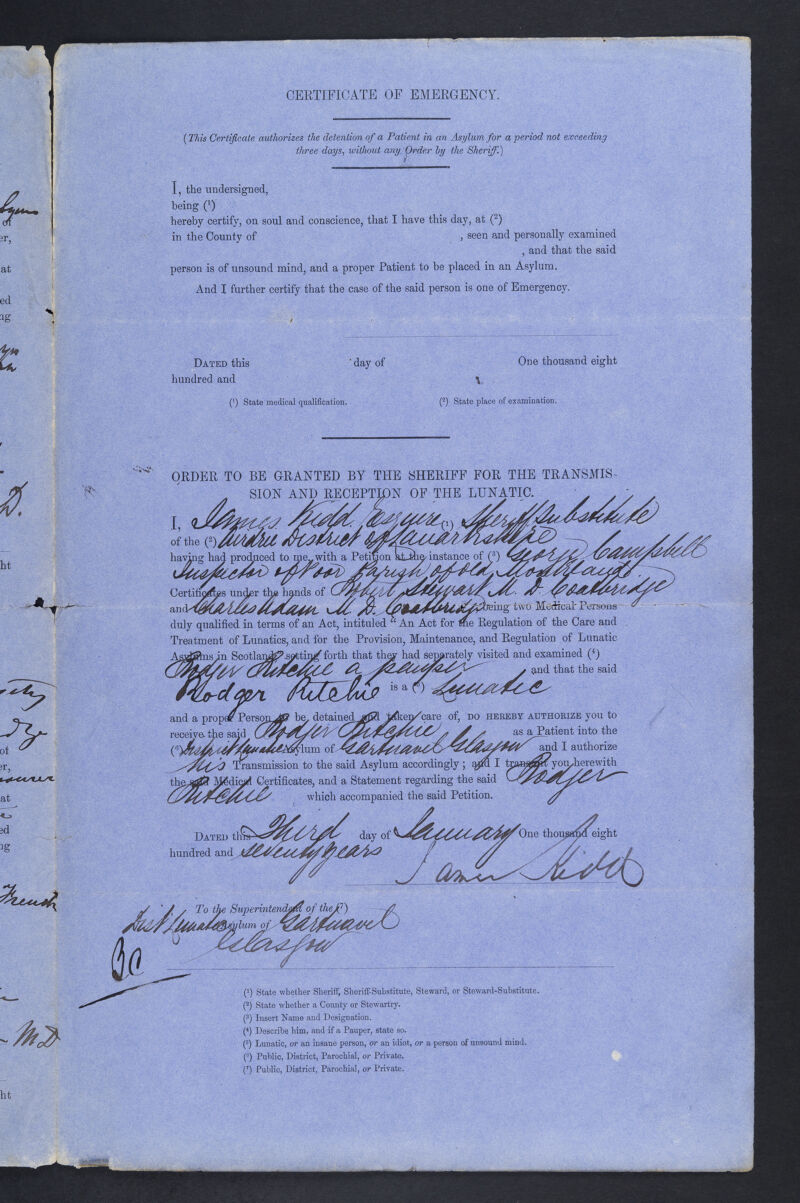 CERTIFICATE OF EMERGENCY.
(This Certificate authorizes the detention of a Patient in an Asylum for a period not exceeding
three days, without any Order by the Sheriff.)
I, the undersigned,
being (¹)
hereby certify, on soul and conscience, that I have this day, at (²)
in the County of , seen and personally examined
, and that the said
person is of unsound mind, and a proper Patient to be placed in an Asylum.
And I further certify that the case of the said person is one of Emergency.
DATED this day of One thousand eight
hundred and
(¹) State medical qualification. (²) State place of examination.
ORDER TO BE GRANTED BY THE SHERIFF FOR THE TRANSMIS-
SION AND RECEPTION OF THE LUNATIC.
I, James Kidd Esquire (¹) Sheriff Substitute
of the (²) Airdrie District of Lanarkshire
having had produced to me, with a Petition at the instance of (³) George Campbell
Inspector of Poor Parish of Old Monkland
Certificates under the hands of Robert Stewart M. D. Coatbridge
and Charles Adam M. D. Coatbridge being two Medical Persons
duly qualified in terms of an Act, intituled "An Act for the Regulation of the Care and
Treatment of Lunatics, and for the Provision, Maintenance, and Regulation of Lunatic
Asylums in Scotland," setting forth that they had separately visited and examined (⁴)
Rodger Ritchie a pauper and that the said
Rodger Ritchie is a (⁵) Lunatic
and a proper Person to be detained and taken care of, DO HEREBY AUTHORIZE you to
receive the said Rodger Ritchie as a Patient into the
(⁶) District Lunatic Asylum of Gartnavel Glasgow and I authorize
his Transmission to the said Asylum accordingly; and I transmit you herewith
the said Medical Certificates, and a Statement regarding the said Rodger
Ritchie which accompanied the said Petition.
DATED this Third day of January One thousand eight
hundred and seventy years
James Kidd
To the Superintendent of the (⁷)
Dist Lunatic Asylum of Gartnavel
Glasgow
(¹) State whether Sheriff, Sheriff-Substitute, Steward, or Steward-Substitute.
(²) State whether a County or Stewartry.
(³) Insert Name and Designation.
(⁴) Describe him, and if a Pauper, state so.
(⁵) Lunatic, or an insane person, or an idiot, or a person of unsound mind.
(⁶) Public, District, Parochial, or Private.
(⁷) Public, District, Parochial, or Private.